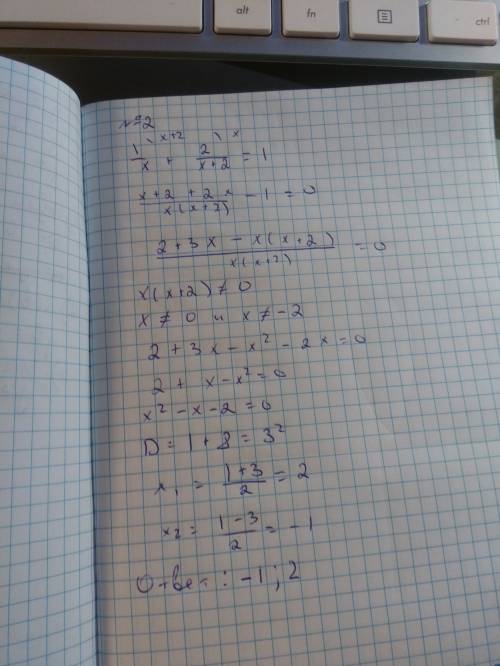 alt
fn
ctrl
№2
1/x \x+2 + 2/(x+2) \x = 1
(x+2+2x)/(x(x+2)) - 1 = 0
(2+3x-x(x+2))/(x(x+2)) = 0
x(x+2) ≠ 0
x ≠ 0 и x ≠ -2
2+3x-x²-2x=0
2+x-x²=0
x²-x-2=0
D=1+8=3²
x₁ = (1+3)/2 = 2
x₂ = (1-3)/2 = -1
Ответ: -1; 2